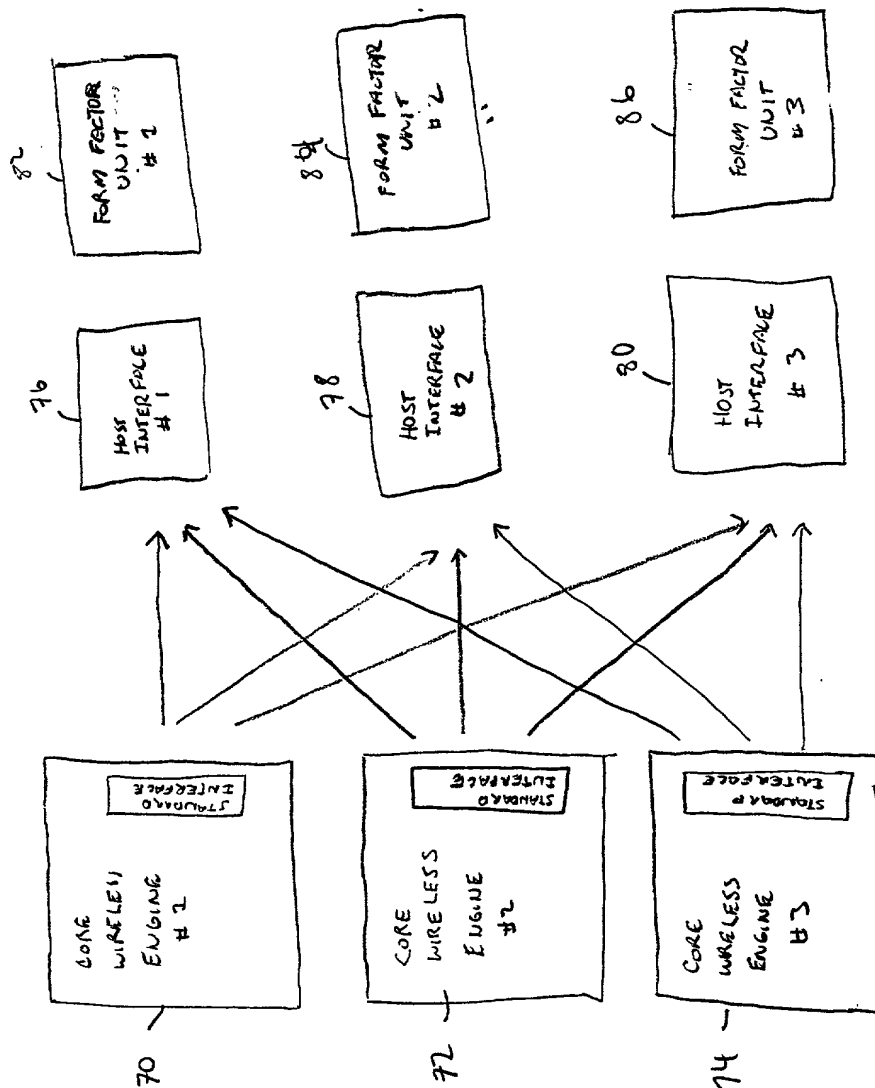 82
FORM FECTOR
UNIT
# 1
84
FORM FACTOR
UNIT
# 2
86
FORM FACTOR
UNIT
# 3
76
HOST
INTERFACE
# 1
78
HOST
INTERFACE
# 2
80
HOST
INTERFACE
# 3
CORE
WIRELESS
ENGINE
# 1
STANDARD
INTERFACE
70
CORE
WIRELESS
ENGINE
#2
STANDARD
INTERFACE
72
CORE
WIRELESS
ENGINE
#3
STANDARD
INTERFACE
74